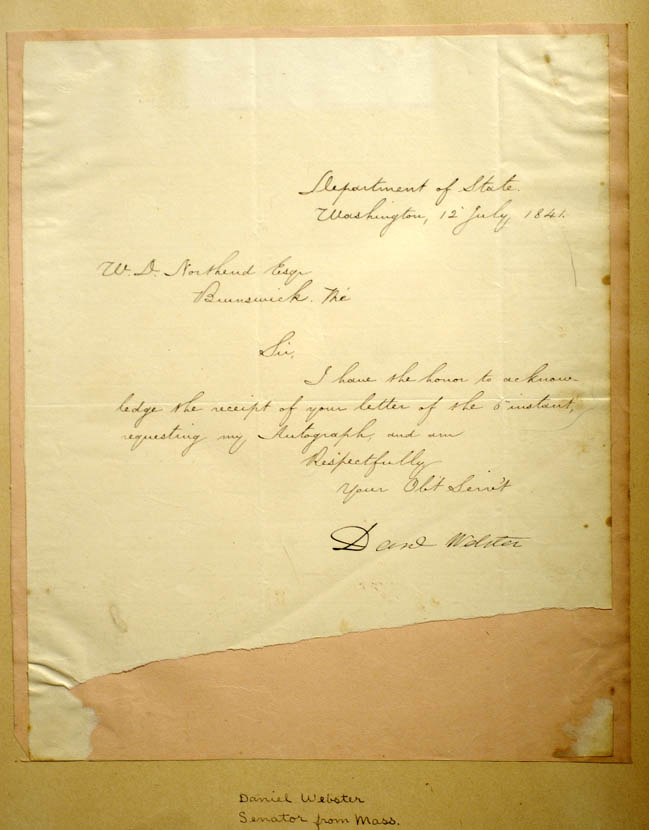 Department of State.
Washington, 12 July, 1841.
W. D. Northend Esqr
Brunswick. Me
Sir,
I have the honor to acknow-
ledge the receipt of your letter of the 5 instant,
requesting my Autograph, and am
Respectfully
Your Obt Servt
Danl Webster
Daniel Webster
Senator from Mass.